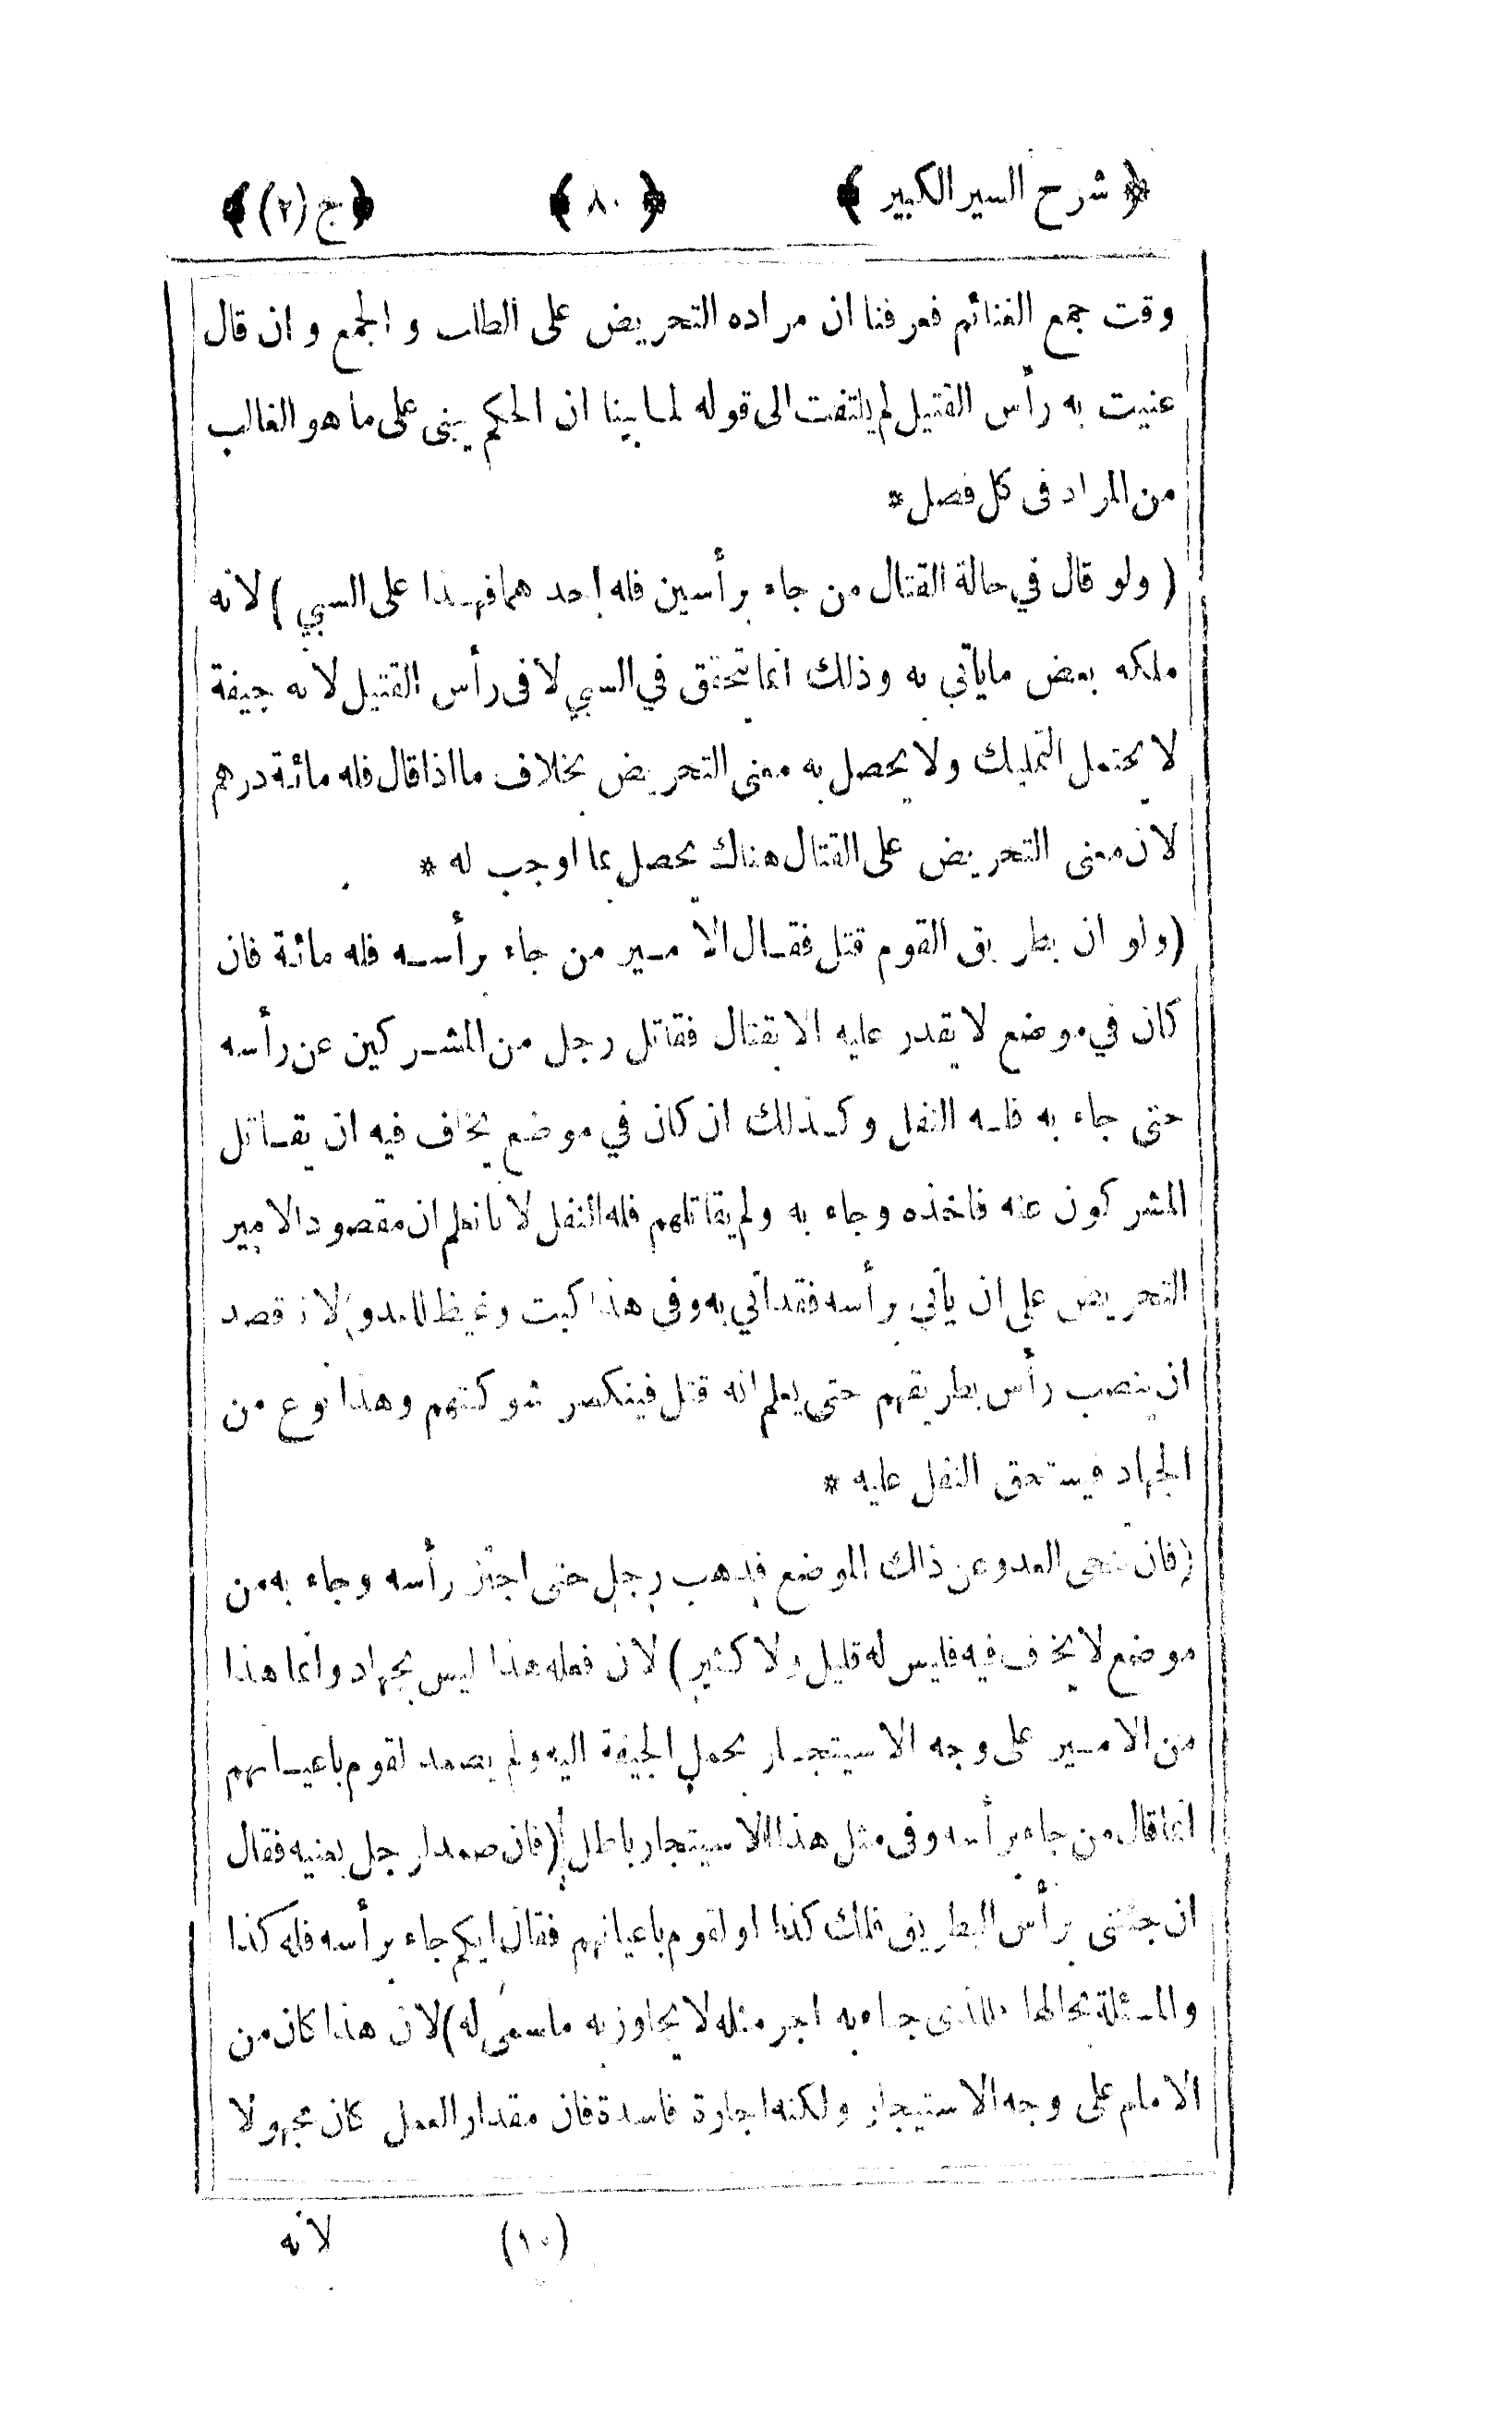 ﴿ شرح السير الكبير ﴾ ﴿ ٨٠ ﴾ ﴿ ج (٢) ﴾
وقت جمع الغنائم فعرفنا ان مراده التحريض على الطلب و الجمع و ان قال
عنيت به رأس القتيل لم يلتفت الى قوله لما بينا ان الحكم يبنى على ما هو الغالب
من المراد فى كل فصل *
( ولو قال في حالة القتال من جاء برأسين فله احدهما فهذا على السبي ) لانه
ملكه بعض مايأتي به وذلك انما يتحقق في السبي لا فى رأس القتيل لانه جيفة
لا يحتمل التمليك ولا يحصل به معنى التحريض بخلاف ما اذا قال فله مائة درهم
لان معنى التحريض على القتال هناك يحصل بما اوجب له *
(ولو ان بطريق القوم قتل فقال الامير من جاء برأسه فله مائة فان
كان في موضع لا يقدر عليه الا بقتال فقاتل رجل من المشركين عن رأسه
حتى جاء به فله النفل وكذلك ان كان في موضع يخاف فيه ان يقاتل
المشركون عنه فاخذه وجاء به ولم يقاتلهم فله النفل لانا نعلم ان مقصود الامير
التحريض على ان يأتي برأسه فقد اتي به وفى هذا كبت وغيظ للعدو لانه قصد
ان ينصب رأس بطريقهم حتى يعلم انه قتل فينكسر شوكتهم وهذا نوع من
الجهاد فيستحق النفل عليه *
(فان تنحى العدو عن ذلك الموضع فذهب رجل حتى اجتز رأسه وجاء به من
موضع لا يخاف فيه فليس له قليل ولا كثير) لان فعله هذا ليس بجهاد وانما هذا
من الامير على وجه الاستيجار بحمل الجيفة اليه ولم يصمد لقوم باعيانهم
انما قال من جاء برأسه وفى مثل هذا الاستيجار باطل (فان صمد لرجل بعينه فقال
ان جئتنى برأس البطريق فلك كذا او لقوم باعيانهم فقال ايكم جاء برأسه فله كذا
والمسئلة بحالها فللذى جاء به اجر مثله لا يجاوز به ما سمى له) لان هذا كان من
الامام على وجه الاستيجار ولكنه اجارة فاسدة فان مقدار العمل كان مجهولا
(١٠) لانه